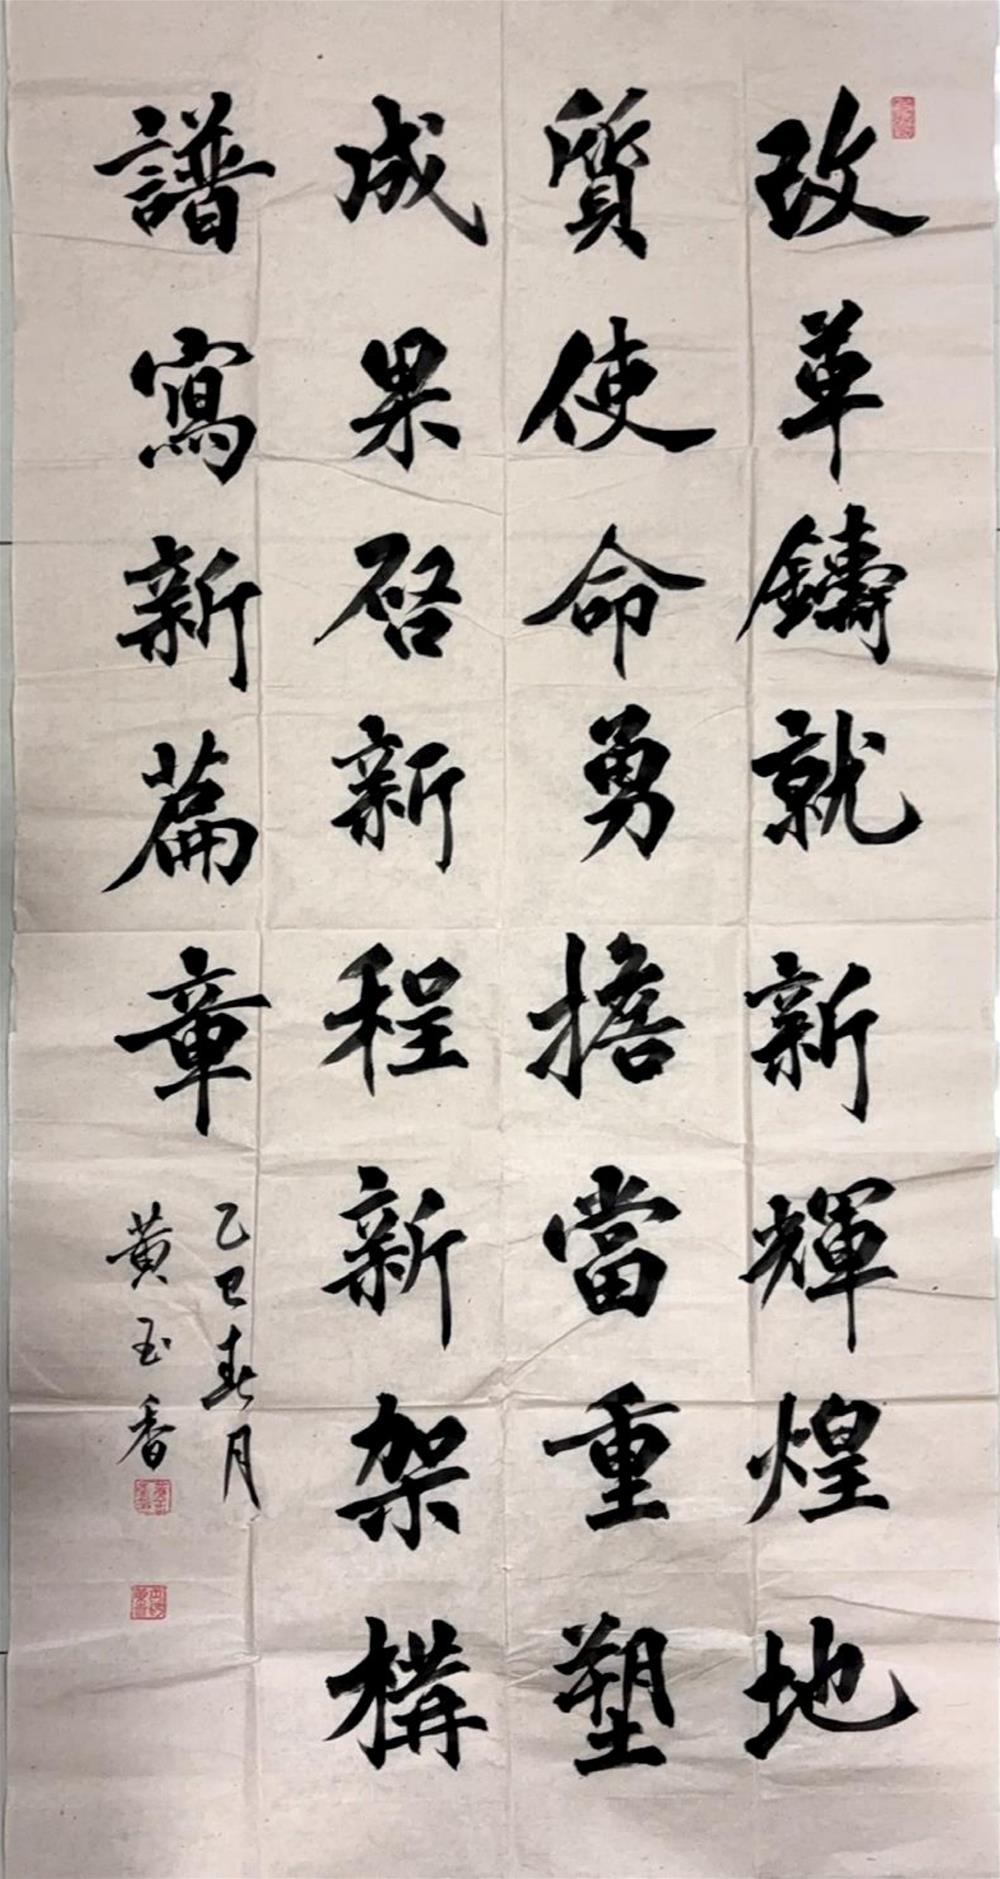 改革鑄就新輝煌地
質使命勇擔當重塑
成果啓新程新架構
譜寫新篇章
乙巳春月
黃玉香